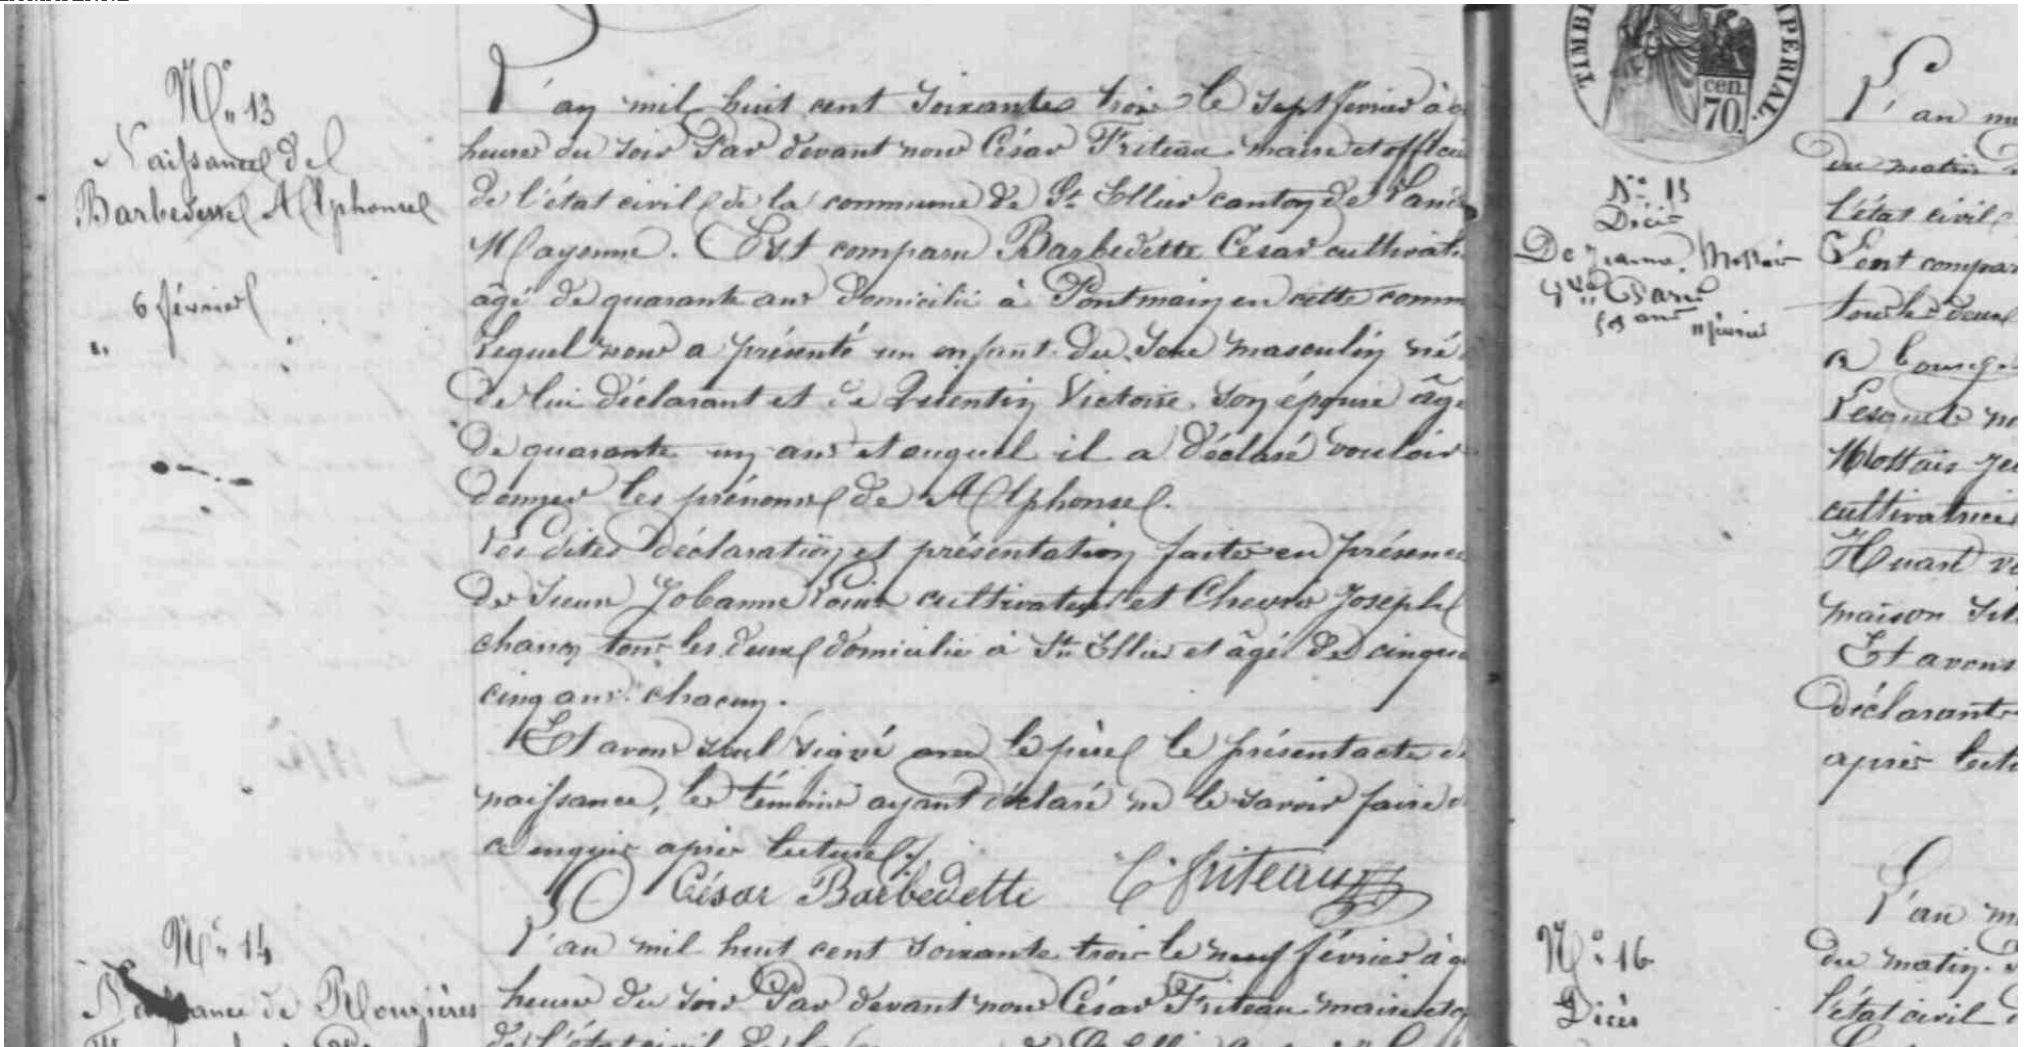 N° 13
Naissance de
Barbedette Alphonse
6 février
L'an mil huit cent soixante trois le sept février à
heure du soir Par devant nous César Friteau maire et offi
de l'état civil de la commune de St Ellier canton de Land
Mayenne. Est comparu Barbedette César cultivat
âgé de quarante ans domicilié à Pontmain en cette comm
Lequel nous a présenté un enfant du sexe masculin né
de lui déclarant et de Quentin Victoire son épouse âgé
de quarante un ans et auquel il a déclaré vouloir
donner les prénoms de Alphonse.
Les dites déclaration et présentation faites en présence
de sieurs Jobanne Louis cultivateur et Chevré Joseph
tous les deux domicilié à St Ellier et âgé de cinqu
cinq ans chacun.
Et avons seul signé avec le père le présent acte de
naissance, les témoins ayant déclaré ne le savoir faire
enquis après lecture.
César Barbedette C. friteau
N° 14
Naissance de Plouzières
L'an mil huit cent soixante trois le neuf février à
heure du soir Par devant nous César Friteau maire et
de l'état civil de la
TIMBRE IMPERIAL
cen.
70.
N° 15
Décès
De Jeanne Mottais
Vve
59 ans 11 février
L'an m
du matin
l'état civil
Sont compar
tous les deux
a bourg
Lesquels n
Mottais Je
cultivatrice
Huart v
maison
Et avons
déclarant
après lect
N° 16
Décès
L'an m
du matin
l'état civil